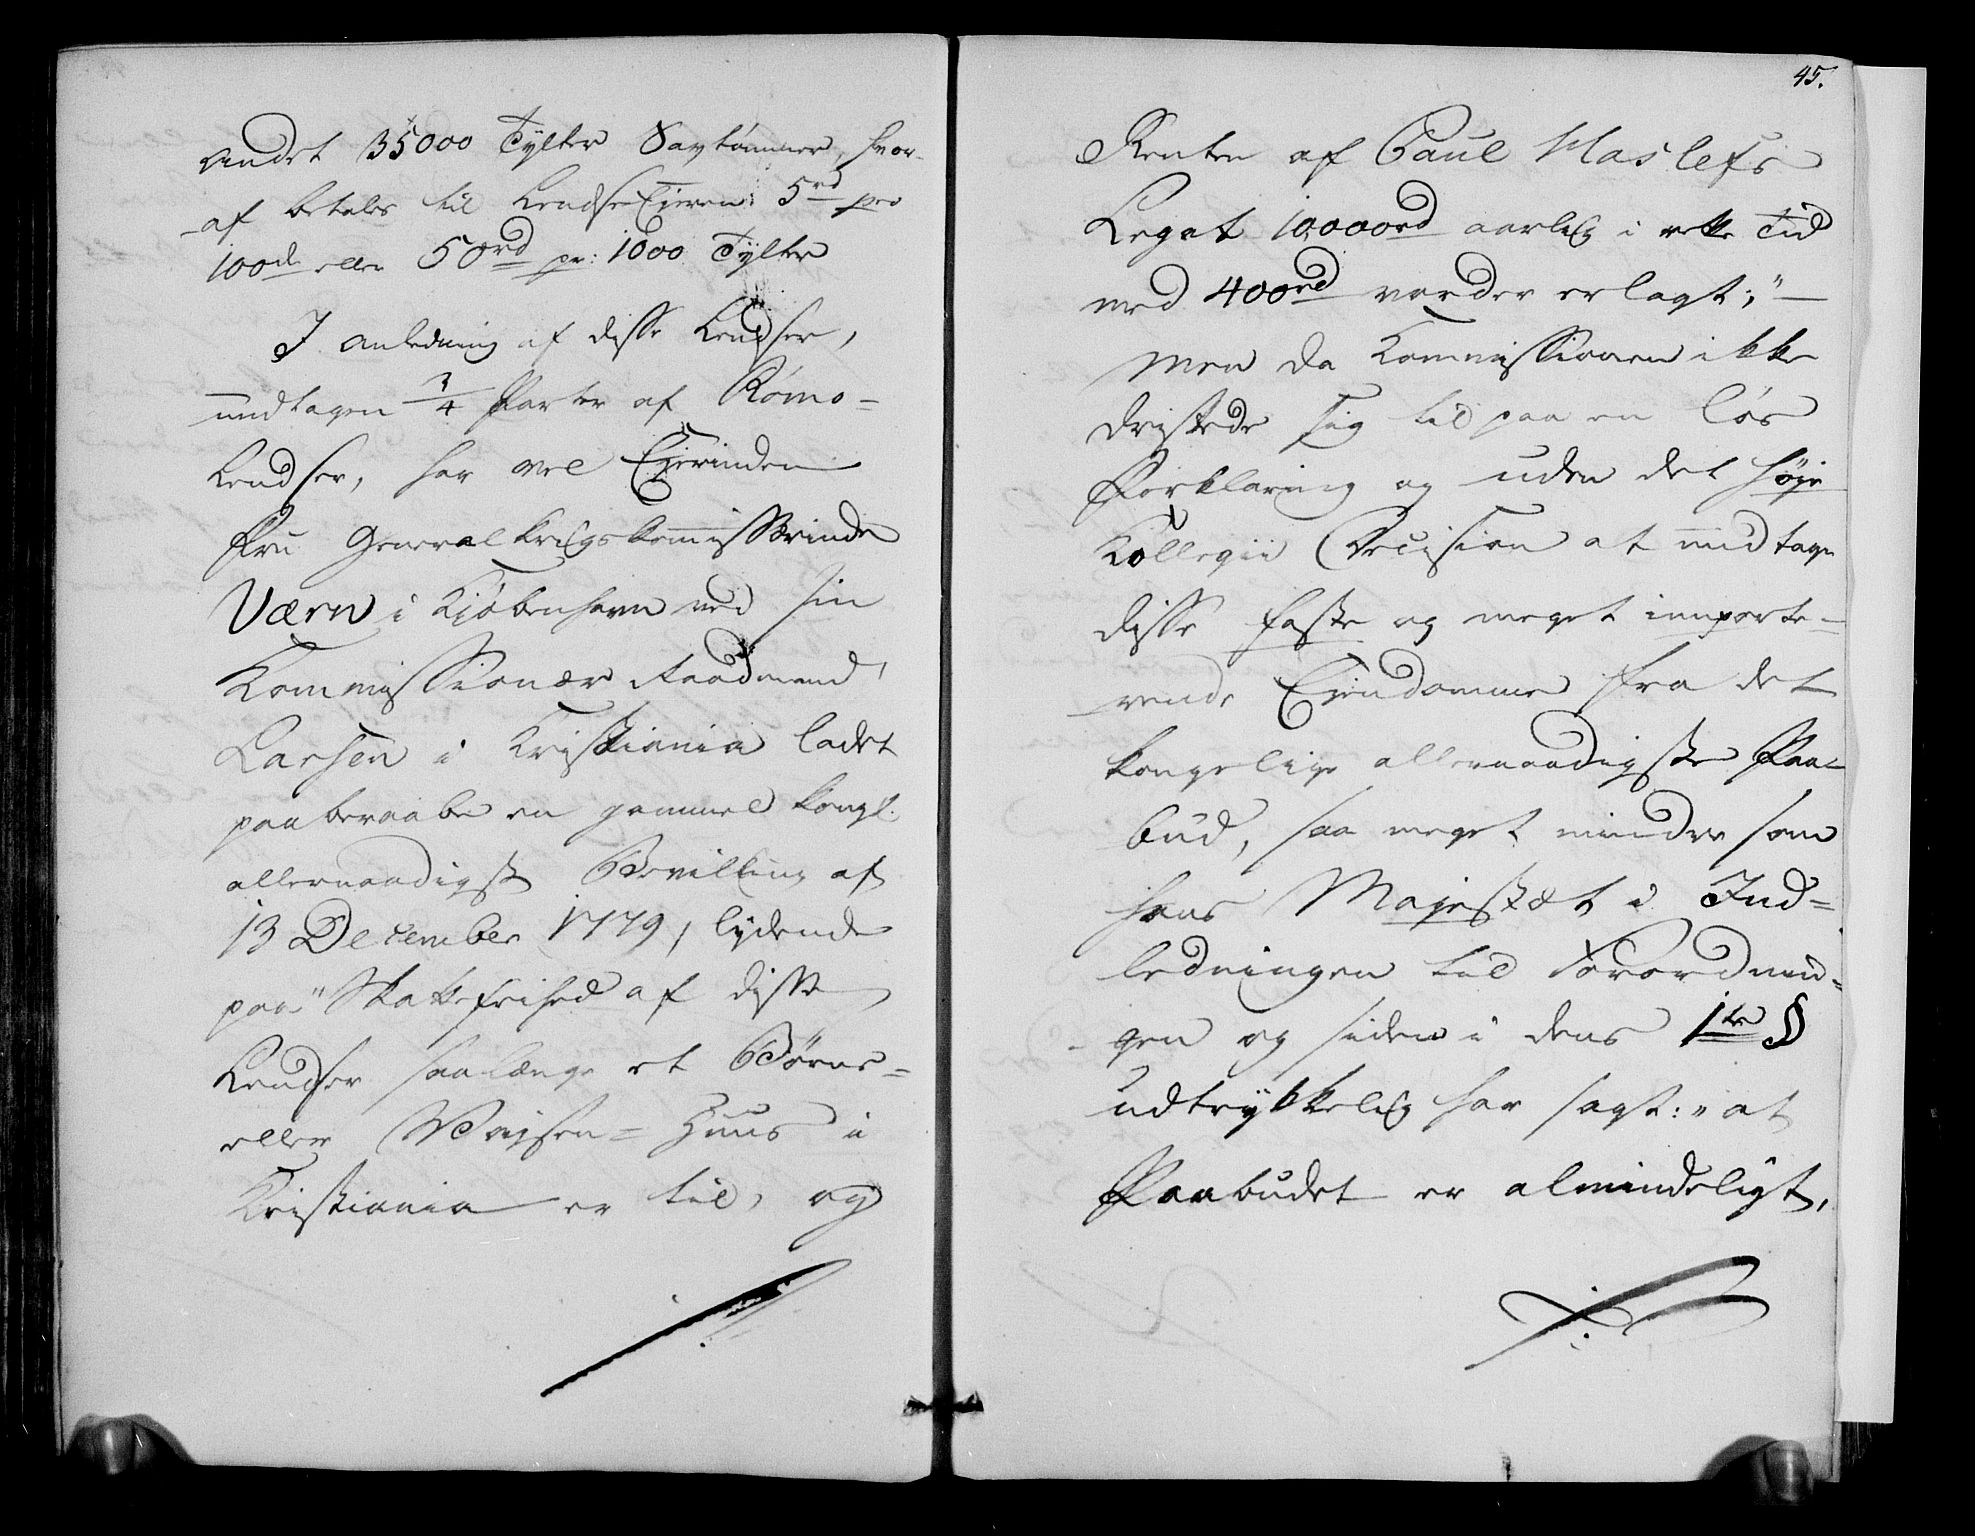 andet 35000 Tylter Savtømmer, hvor-
af betales til Lendse Ejeren: 5rd pro
100de eller 50rd pr: 1000 Tylter
I anledning af disse Lendser,
undtagen 3/4 Parter af Rømo=
Lendser, har vel Ejerinden
Fru Generalkrigskommisserinde
Værn i Kiøbenhavn ved sin
Kommissionær Raadmand
Larsen i Kristiania ladet
paaberaabe en gammel kongl.
allernaadigst Bevilling af
13 December 1779, lydende
paa "Skattefrihed af disse
Lendser saalænge et Børne=
eller Waisen=Huus i
Kristiania er til, og
45.
Renten af Paul Haslefs
Legat 10,000rd aarlig i rette Tid
med 400rd vorder erlagt;"
Men da Kommissionen ikke
dristede sig til paa en løs
Forklaring og uden det høje
Kollegii Decision at undtage
disse faste og meget importe-
rende Ejendomme fra det
kongelige allernaadigste Paa-
bud, saa meget mindre som
hans Majestæt i Ind=
ledningen til Forordnin=
gen og siden i dens 1te §
udtrykkelig har sagt: "at
Paabudet er almindeligt,